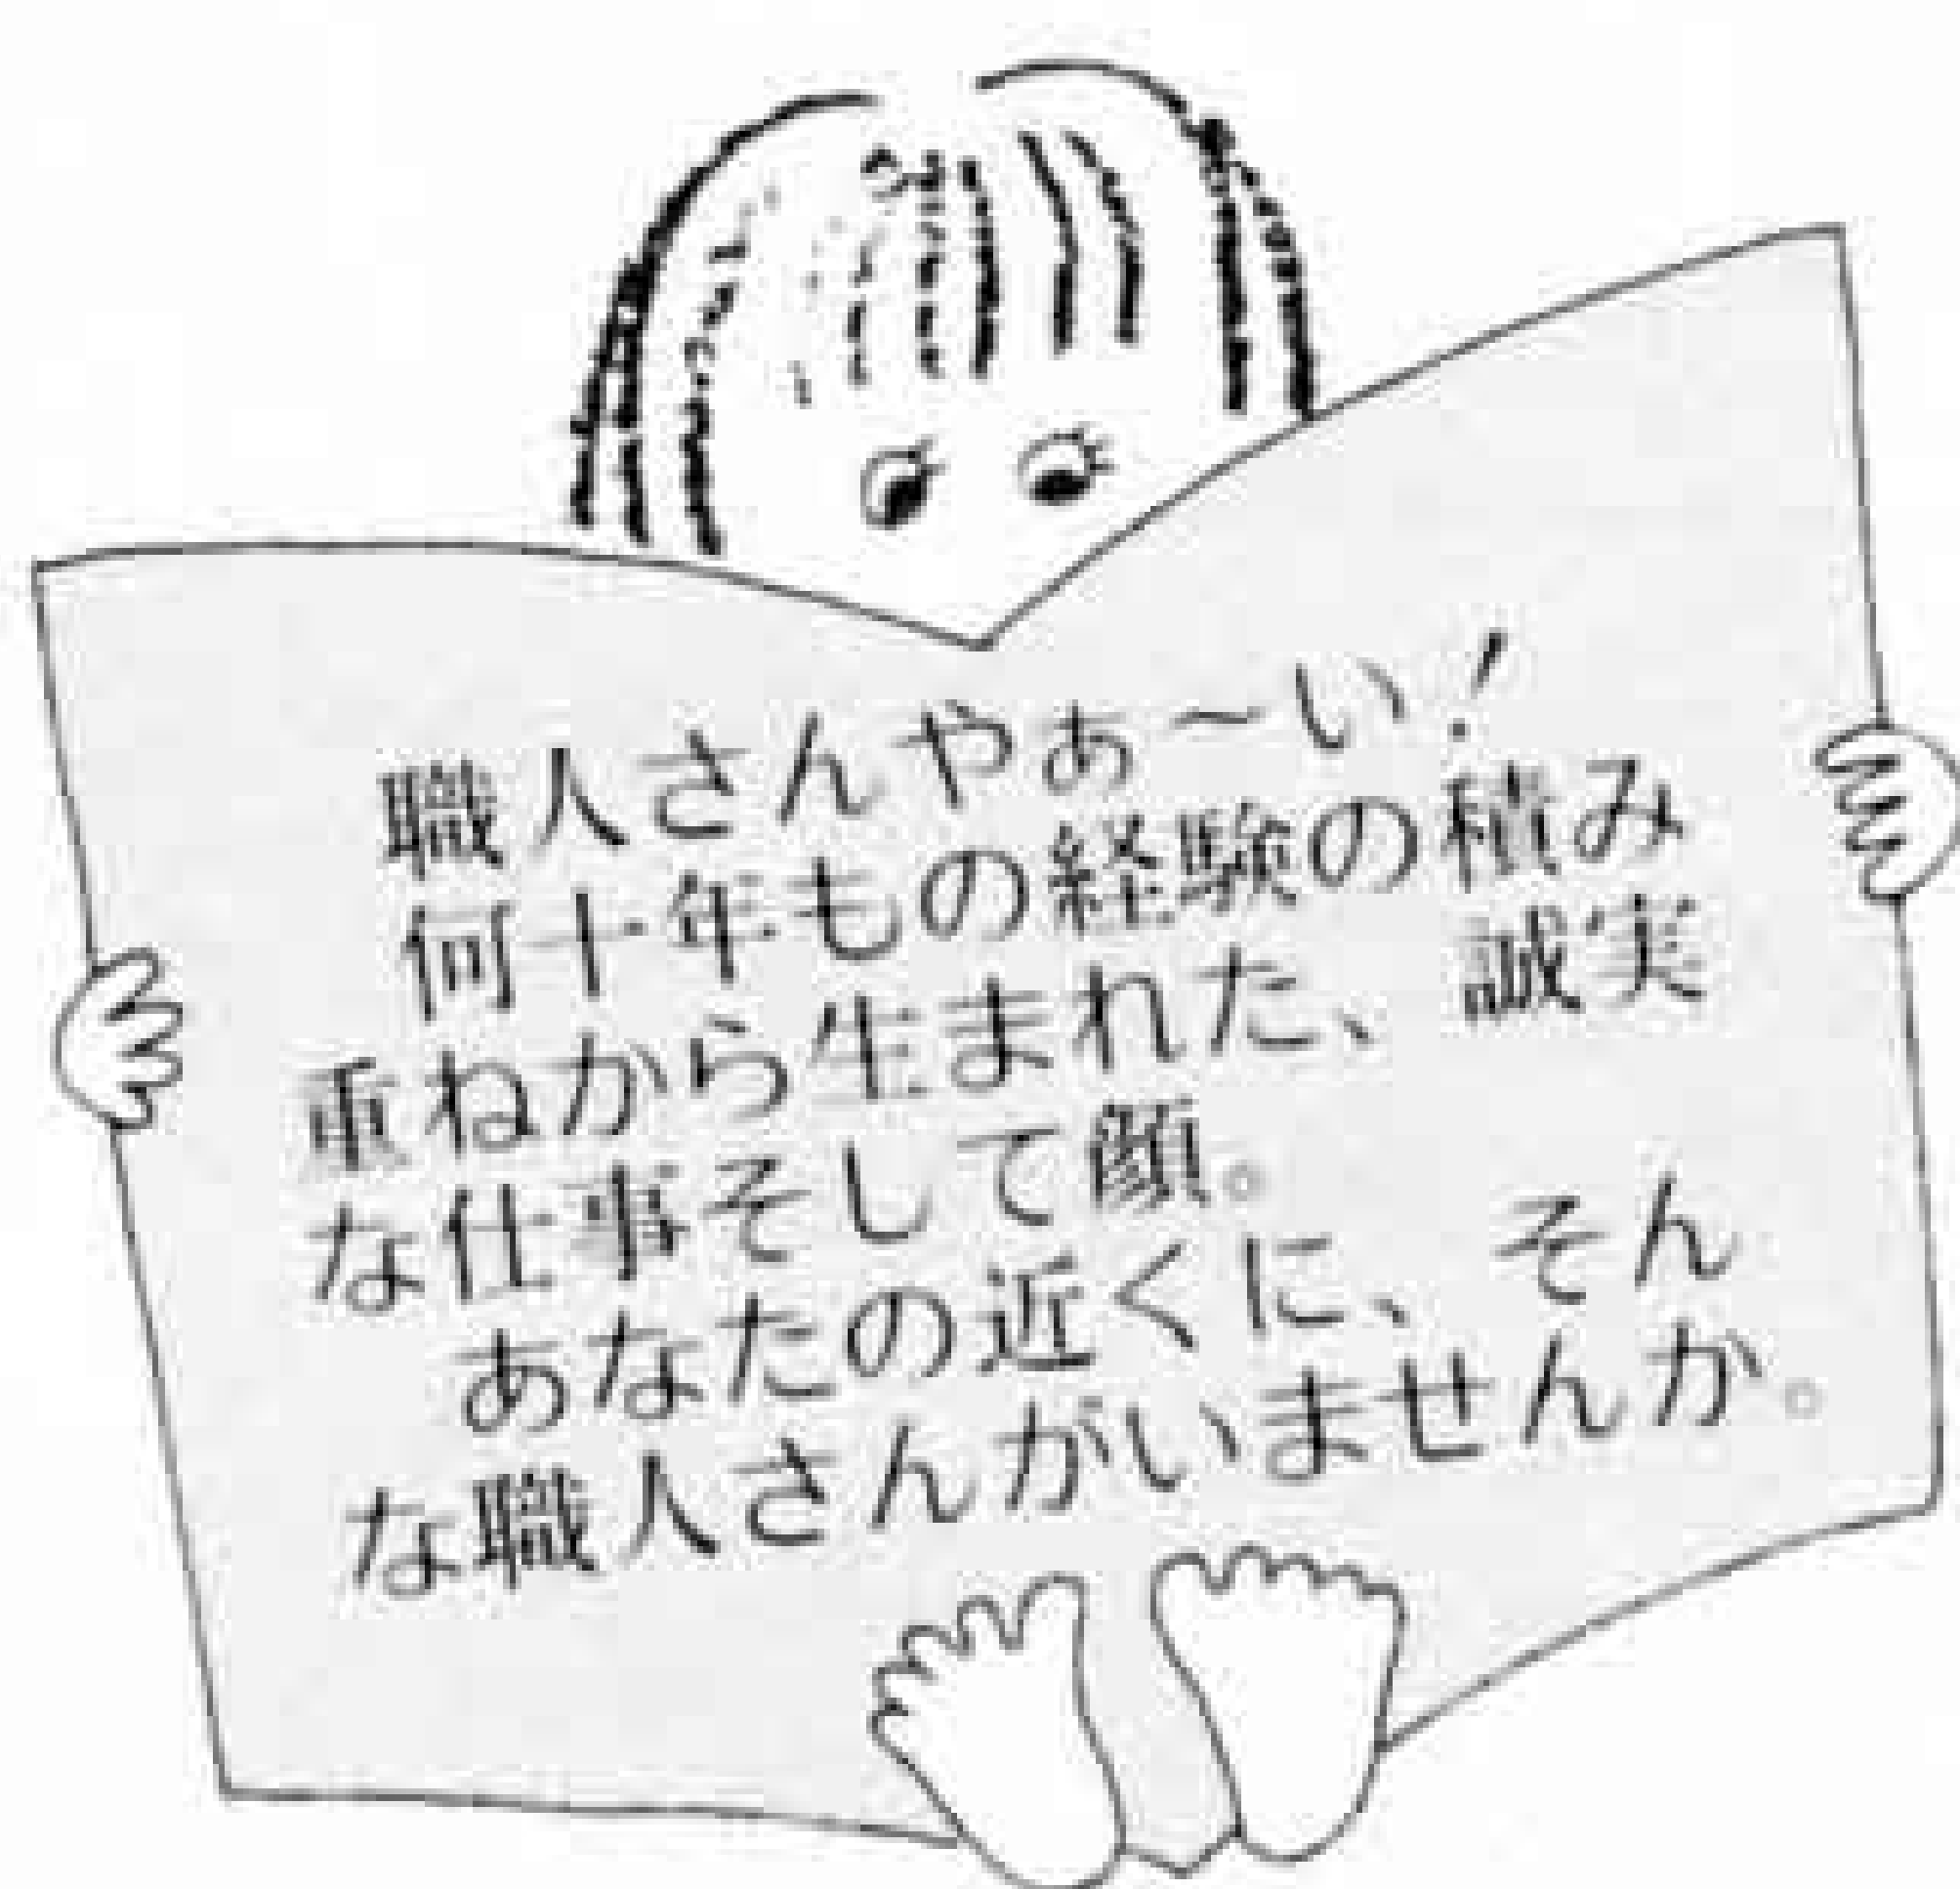 職人さんやぁ～い！
何十年もの経験の積み
重ねから生まれた、誠実
な仕事そして顔。
あなたの近くに、そん
な職人さんがいませんか。